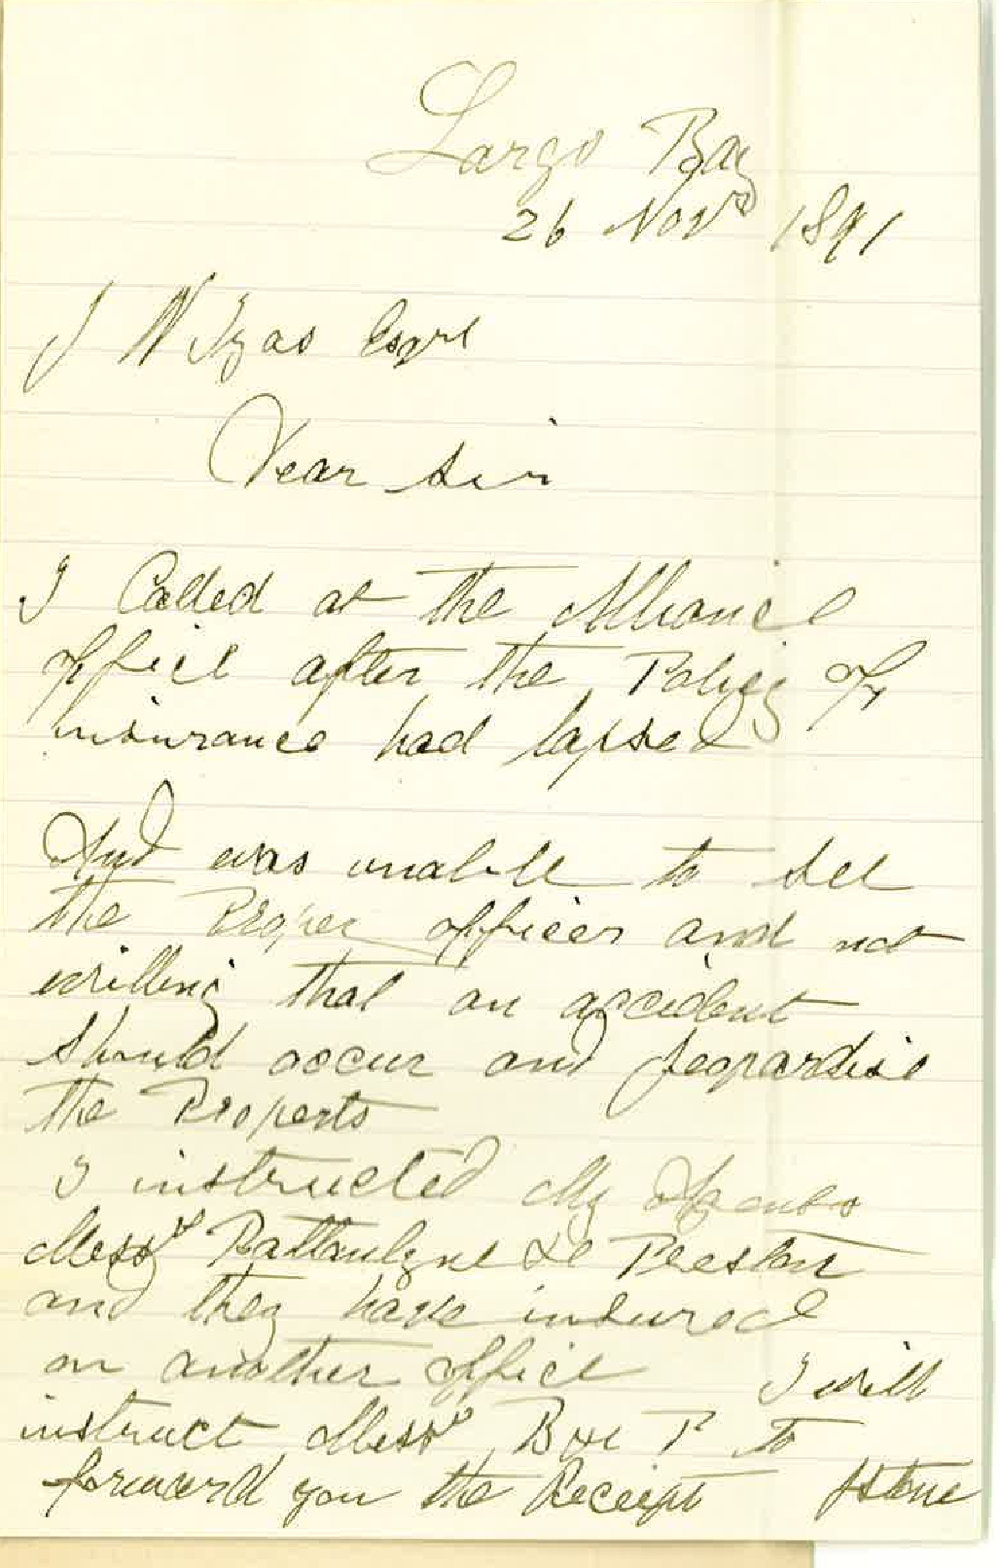 Largo Bay
26 Novr 1891
J W Izas Esqre
Dear Sir
I Called at the Alliance
office after the Policy of
insurance had lapsed
And was unable to see
the Proper officer and not
willing that an accident
should occur and jeopardise
the Property
I instructed My Agents
Messrs &
and they have insured
on another office I will
instruct Messrs B &
to
forward you the Receipt